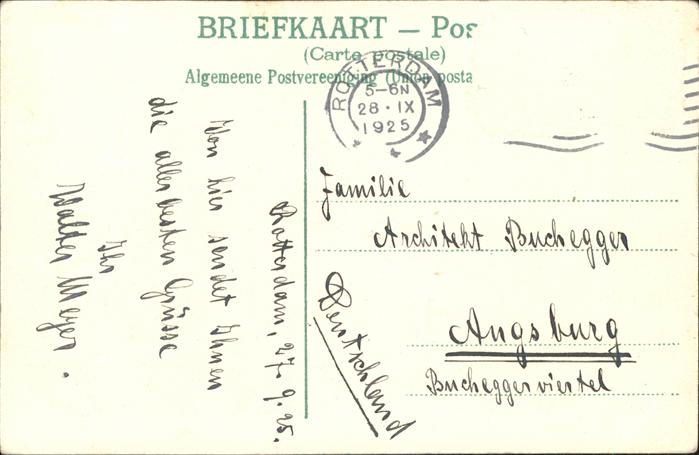 BRIEFKAART — Pos
(Carte postale)
Algemeene Postvereeniging (Union posta
ROTTERDAM
5-6N
28·IX
1925
Rotterdam, 27. 9. 25.
Von hier sendet Ihnen
die allerbesten Grüsse
Ihr
Walter Meyer.
Familie
Architekt Buchegger
Augsburg
Bucheggerviertel
Deutschland